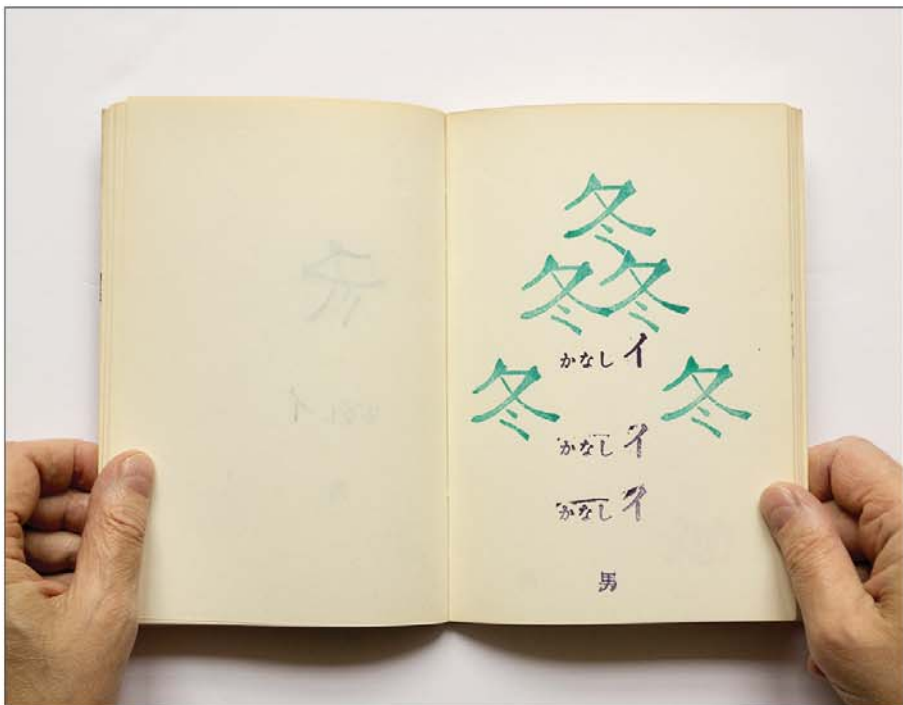 冬
冬冬
かなしイ
冬 冬
かなしイ
かなしイ
男